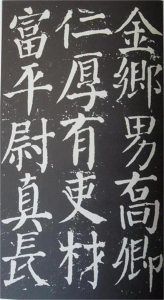 金鄉男高卿
仁厚有吏材
富平尉真長